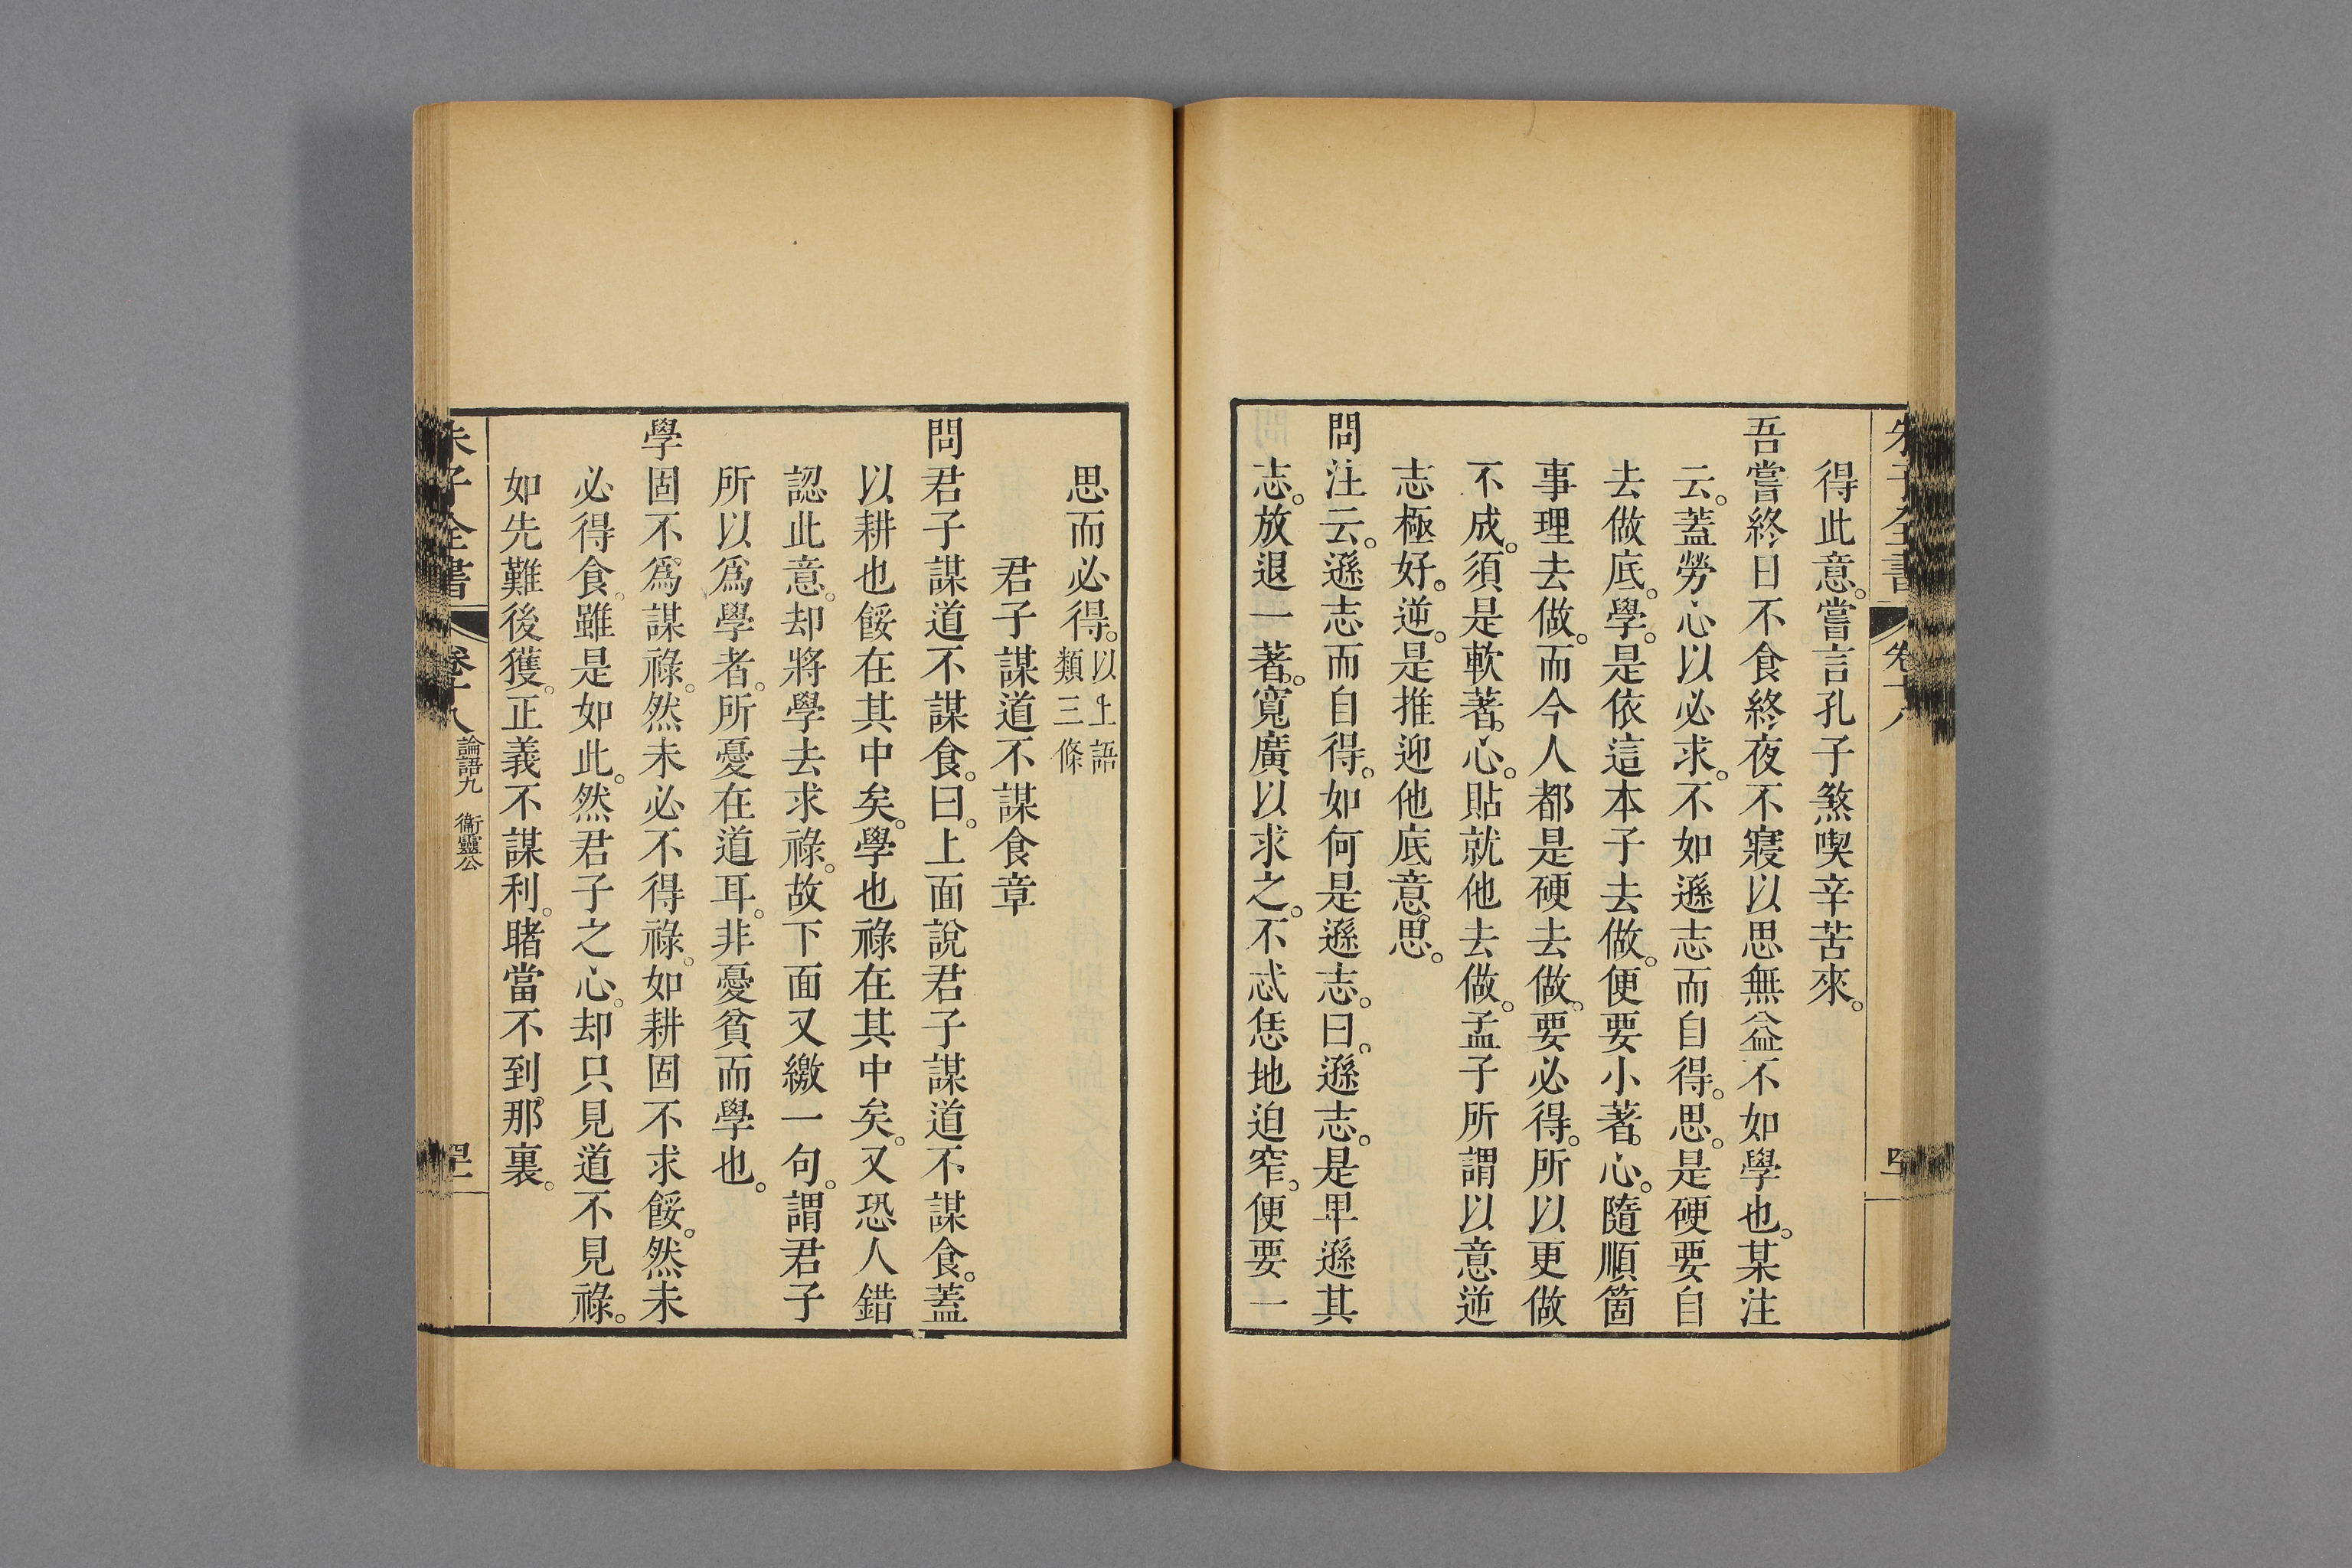 得此意。嘗言孔子煞喫辛苦來。
吾嘗終日不食終夜不寢以思無益不如學也。某注
云。蓋勞心以必求。不如遜志而自得。思。是硬要自
去做底。學。是依這本子去做。便要小著心。隨順箇
事理去做。而今人都是硬去做。要必得。所以更做
不成。須是軟著心。貼就他去做。孟子所謂以意逆
志極好。逆。是推迎他底意思。
問注云。遜志而自得。如何是遜志。曰。遜志。是卑遜其
志。放退一著。寬廣以求之。不忒恁地迫窄。便要一
思而必得。以上語
類三條
君子謀道不謀食章
問君子謀道不謀食。曰。上面說君子謀道不謀食。蓋
以耕也餒在其中矣。學也祿在其中矣。又恐人錯
認此意。却將學去求祿。故下面又繳一句。謂君子
所以爲學者。所憂在道耳。非憂貧而學也。
學固不爲謀祿。然未必不得祿。如耕固不求餒。然未
必得食。雖是如此。然君子之心。却只見道不見祿。
如先難後獲。正義不謀利。睹當不到那裏。
朱子全書
卷十八
論語九 衞靈公